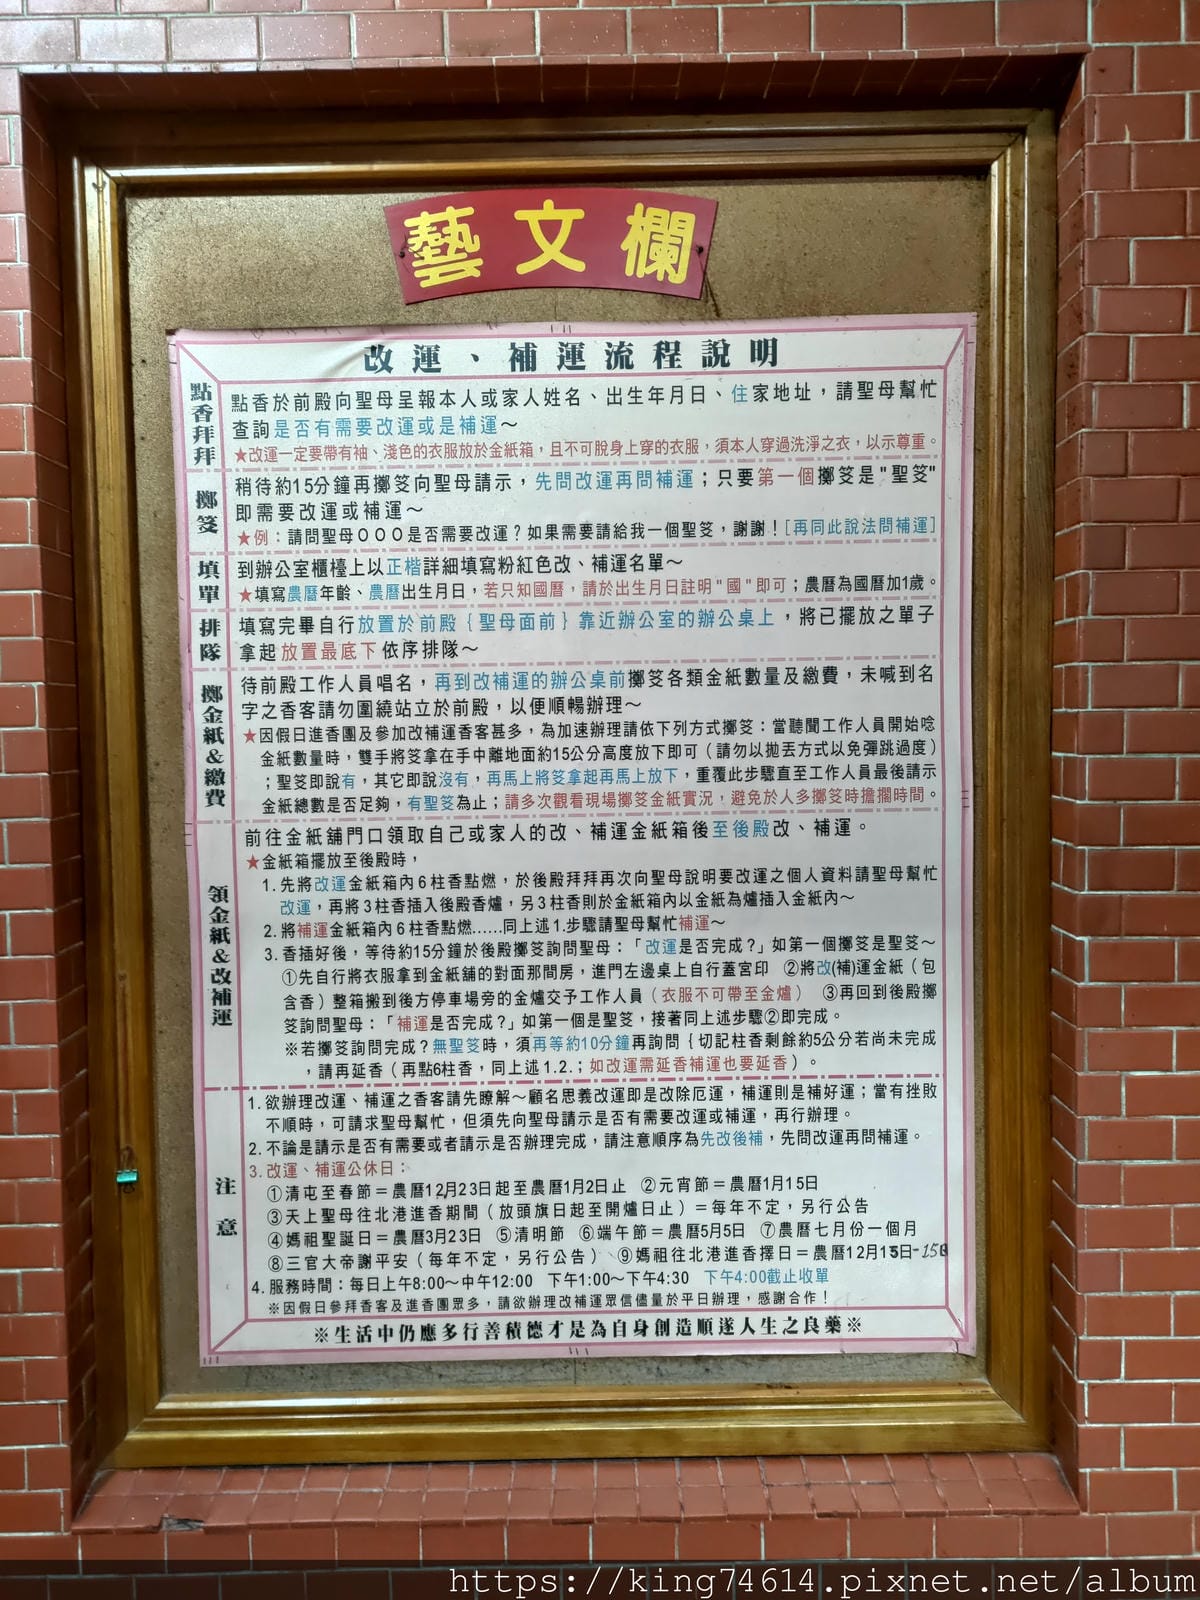 藝文欄
改運、補運流程說明
點香拜拜
點香於前殿向聖母呈報本人或家人姓名、出生年月日、住家地址，請聖母幫忙
查詢是否有需要改運或是補運～
★改運一定要帶有袖、淺色的衣服放於金紙箱，且不可脫身上穿的衣服，須本人穿過洗淨之衣，以示尊重。
擲筊
稍待約15分鐘再擲筊向聖母請示，先問改運再問補運；只要第一個擲筊是"聖筊"
即需要改運或補運～
★例：請問聖母OOO是否需要改運？如果需要請給我一個聖筊，謝謝！[再同此說法問補運]
填單
到辦公室櫃檯上以正楷詳細填寫粉紅色改、補運名單～
★填寫農曆年齡、農曆出生月日，若只知國曆，請於出生月日註明"國"即可；農曆為國曆加1歲。
排隊
填寫完畢自行放置於前殿｛聖母面前｝靠近辦公室的辦公桌上，將已擺放之單子
拿起放置最底下依序排隊～
擲金紙&繳費
待前殿工作人員唱名，再到改補運的辦公桌前擲筊各類金紙數量及繳費，未喊到名
字之香客請勿圍繞站立於前殿，以便順暢辦理～
★因假日進香團及參加改補運香客甚多，為加速辦理請依下列方式擲筊：當聽聞工作人員開始唸
金紙數量時，雙手將筊拿在手中離地面約15公分高度放下即可（請勿以拋丟方式以免彈跳過度）
；聖筊即說有，其它即說沒有，再馬上將筊拿起再馬上放下，重覆此步驟直至工作人員最後請示
金紙總數是否足夠，有聖筊為止；請多次觀看現場擲筊金紙實況，避免於人多擲筊時擔擱時間。
領金紙&改補運
前往金紙舖門口領取自己或家人的改、補運金紙箱後至後殿改、補運。
★金紙箱擺放至後殿時，
1.先將改運金紙箱內6柱香點燃，於後殿拜拜再次向聖母說明要改運之個人資料請聖母幫忙
改運，再將3柱香插入後殿香爐，另3柱香則於金紙箱內以金紙為爐插入金紙內～
2.將補運金紙箱內6柱香點燃……同上述1.步驟請聖母幫忙補運～
3.香插好後，等待約15分鐘於後殿擲筊詢問聖母：「改運是否完成？」如第一個擲筊是聖筊～
①先自行將衣服拿到金紙舖的對面那間房，進門左邊桌上自行蓋宮印 ②將改(補)運金紙（包
含香）整箱搬到後方停車場旁的金爐交予工作人員（衣服不可帶至金爐） ③再回到後殿擲
筊詢問聖母：「補運是否完成？」如第一個是聖筊，接著同上述步驟②即完成。
※若擲筊詢問完成？無聖筊時，須再等約10分鐘再詢問｛切記柱香剩餘約5公分若尚未完成
，請再延香（再點6柱香，同上述1.2.；如改運需延香補運也要延香）。
注意
1.欲辦理改運、補運之香客請先瞭解～顧名思義改運即是改除厄運，補運則是補好運；當有挫敗
不順時，可請求聖母幫忙，但須先向聖母請示是否有需要改運或補運，再行辦理。
2.不論是請示是否有需要或者請示是否辦理完成，請注意順序為先改後補，先問改運再問補運。
3.改運、補運公休日：
①清屯至春節＝農曆12月23日起至農曆1月2日止 ②元宵節＝農曆1月15日
③天上聖母往北港進香期間（放頭旗日起至開爐日止）＝每年不定，另行公告
④媽祖聖誕日＝農曆3月23日 ⑤清明節 ⑥端午節＝農曆5月5日 ⑦農曆七月份一個月
⑧三官大帝謝平安（每年不定，另行公告） ⑨媽祖往北港進香擇日＝農曆12月15日
4.服務時間：每日上午8:00～中午12:00 下午1:00～下午4:30 下午4:00截止收單
※因假日參拜香客及進香團眾多，請欲辦理改補運眾信儘量於平日辦理，感謝合作！
※生活中仍應多行善積德才是為自身創造順遂人生之良藥※
https://king74614.pixnet.net/album